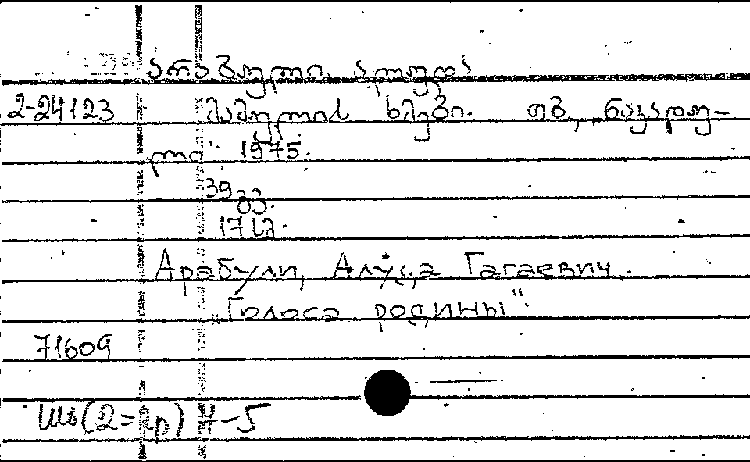 არაბული, ალუდა
2-24123 მამულის ხმები. თბ., „ნაკადუ-
ლი", 1975.
39 გვ.
17 სმ.
Арабули, Алуда Гагаевич.
„Голоса родины"
71609
Шв(2=Гр) Н-5